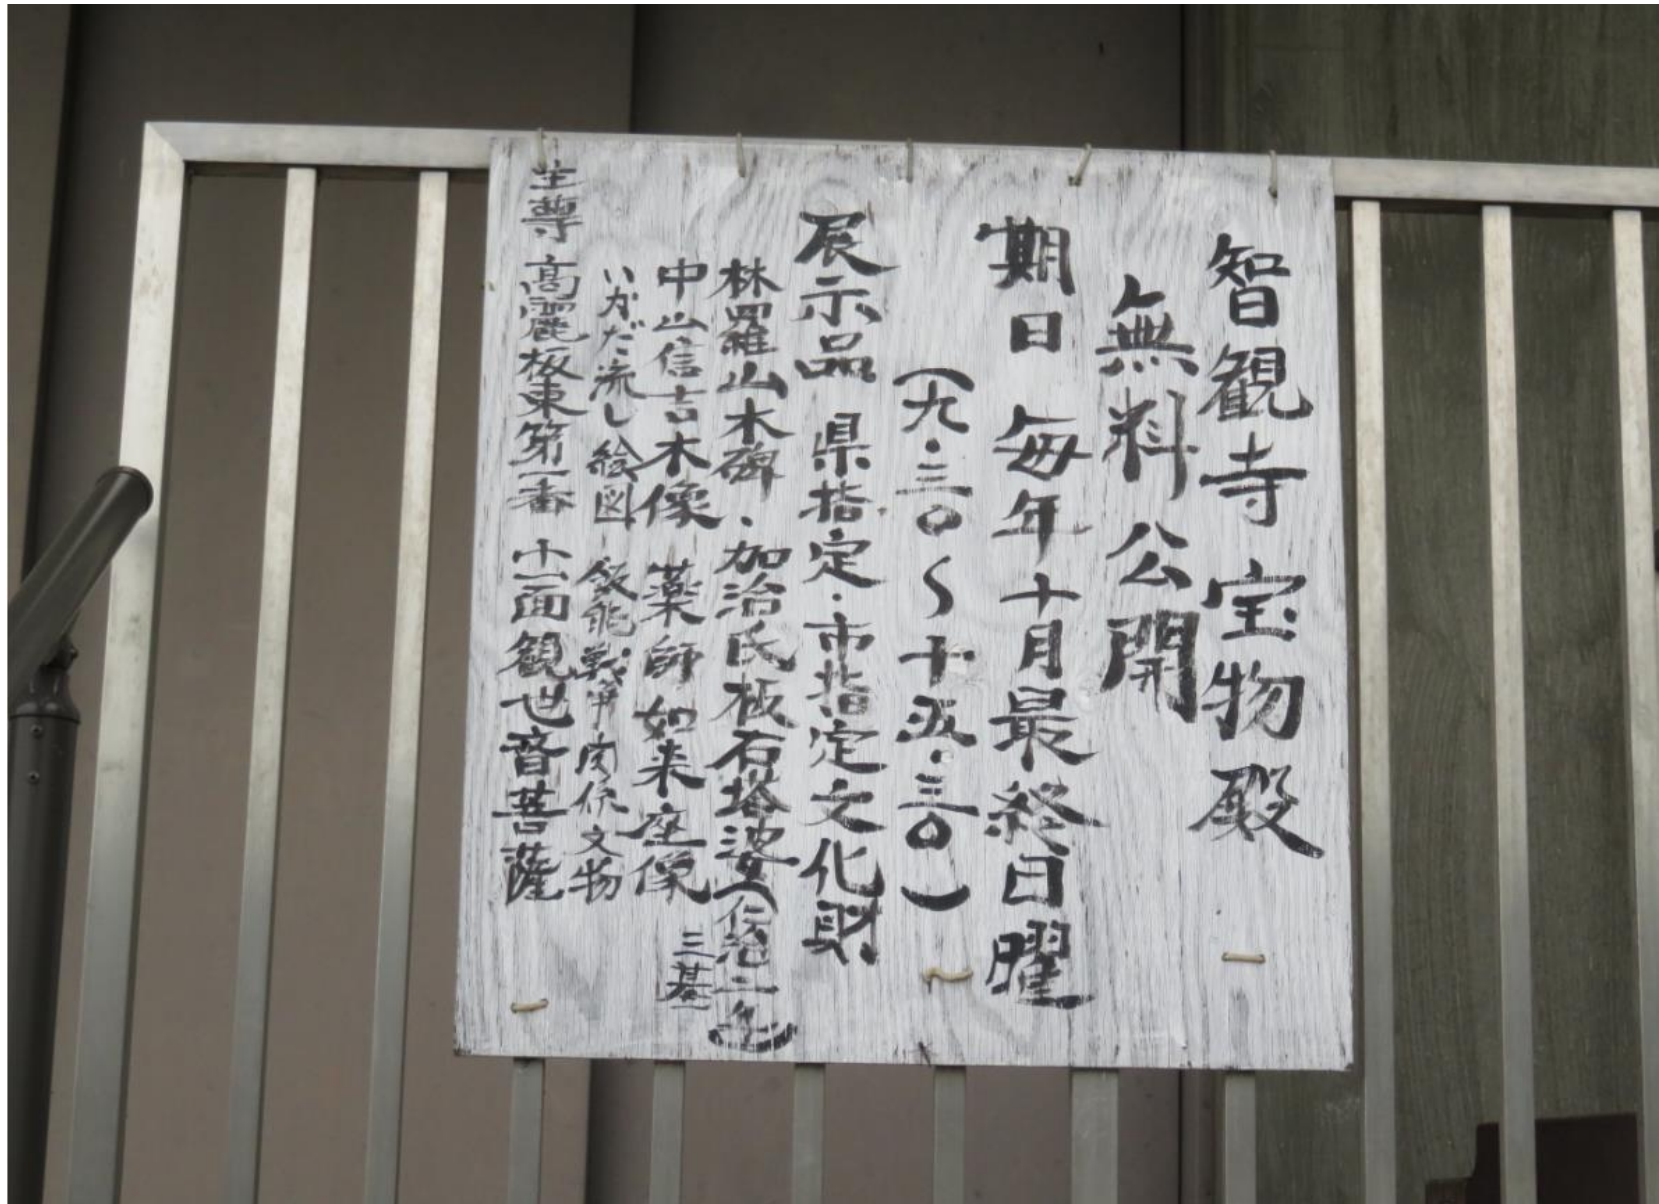 智観寺宝物殿
無料公開
期日 毎年十月最終日曜
(九・三〇〜十五・三〇)
展示品 県指定・市指定文化財
林羅山木碑、加治氏板石塔婆(仁治二年)
三基
中山信吉木像 薬師如来座像
いかだ流し絵図 飯能戦争関係文物
主尊 高麗板東第一番 十一面観世音菩薩